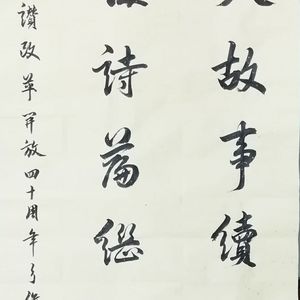 故事續
詩篇繼
讚改革开放四十周年